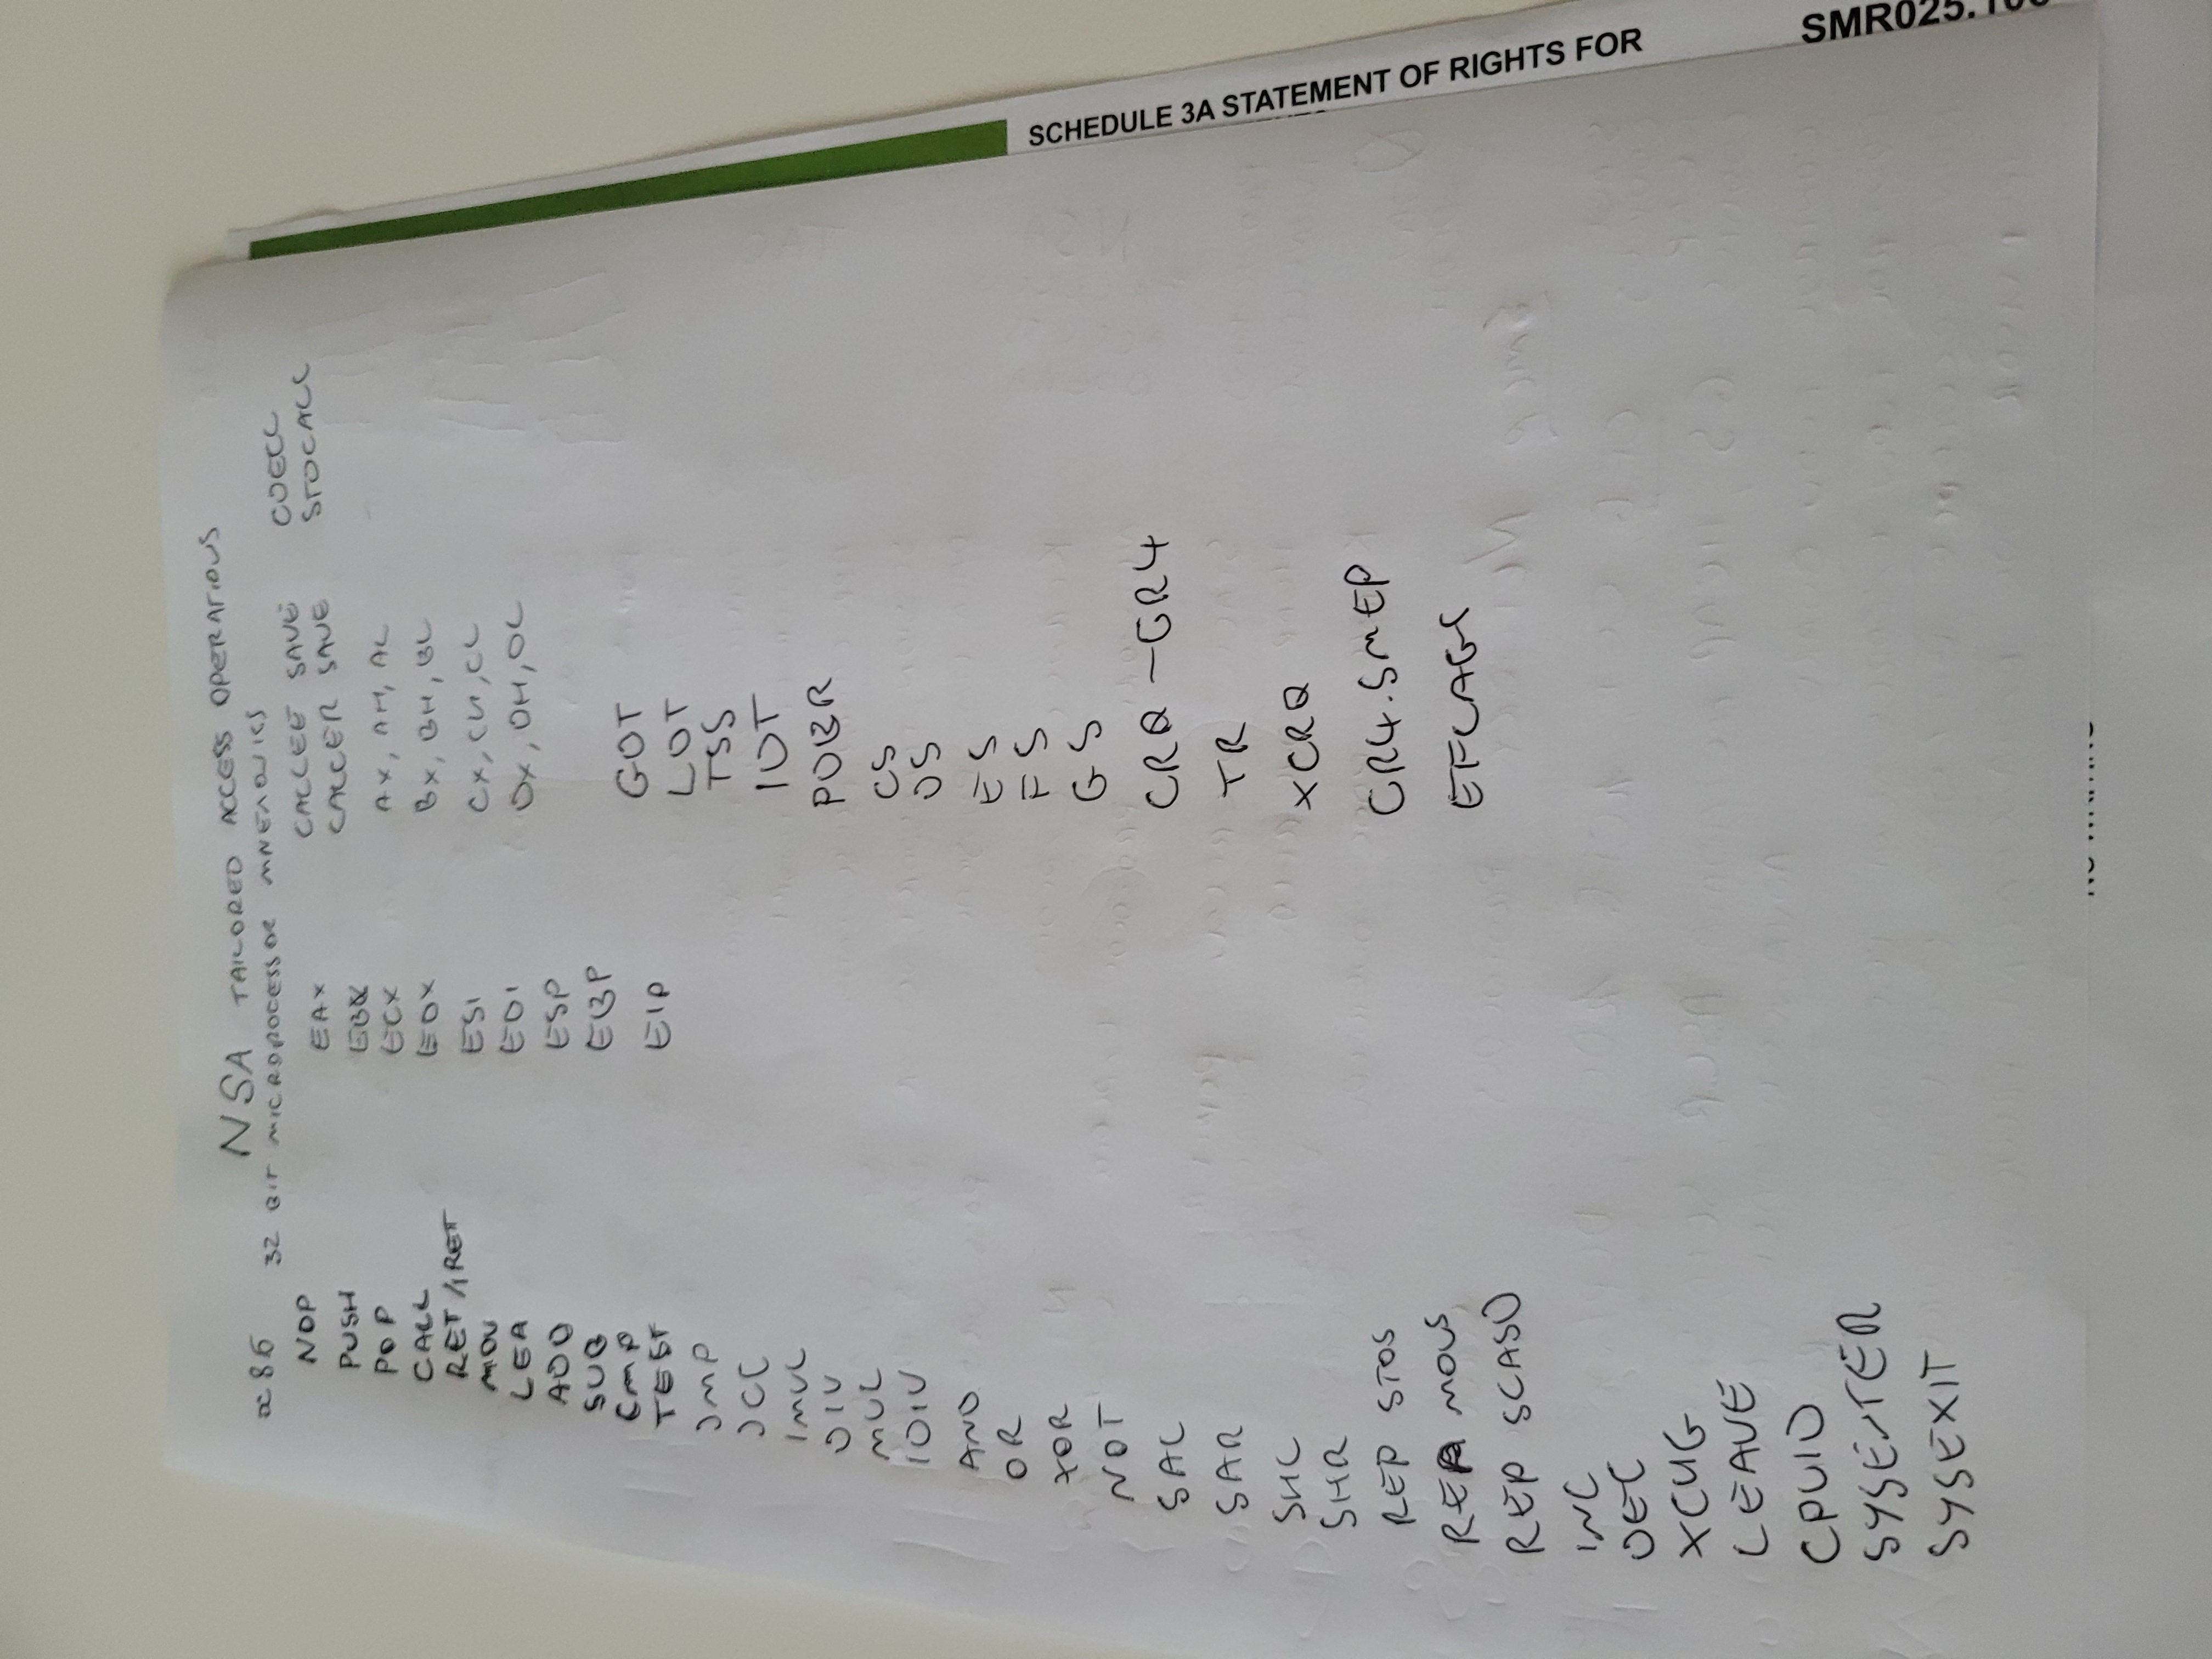 NSA TAILORED ACCESS OPERATIONS
x86 32 BIT MICROPROCESSOR MNEMONICS
NOP
PUSH
POP
CALL
RET/IRET
MOV
LEA
ADD
SUB
CMP
TEST
JMP
JCC
IMUL
DIV
MUL
IDIV
AND
OR
XOR
NOT
SAL
SAR
SHL
SHR
REP STOS
REP MOVS
REP SCASD
INC
DEC
XCHG
LEAVE
CPUID
SYSENTER
SYSEXIT
EAX
EBX
ECX
EDX
ESI
EDI
ESP
EBP
EIP
CALLEE SAVE CDECL
CALLER SAVE STDCALL
AX, AH, AL
BX, BH, BL
CX, CH, CL
DX, DH, DL
GDT
LDT
TSS
IDT
PDBR
CS
DS
ES
FS
GS
CR0 - CR4
TR
XCR0
CR4.SMEP
EFLAGS
SCHEDULE 3A STATEMENT OF RIGHTS FOR